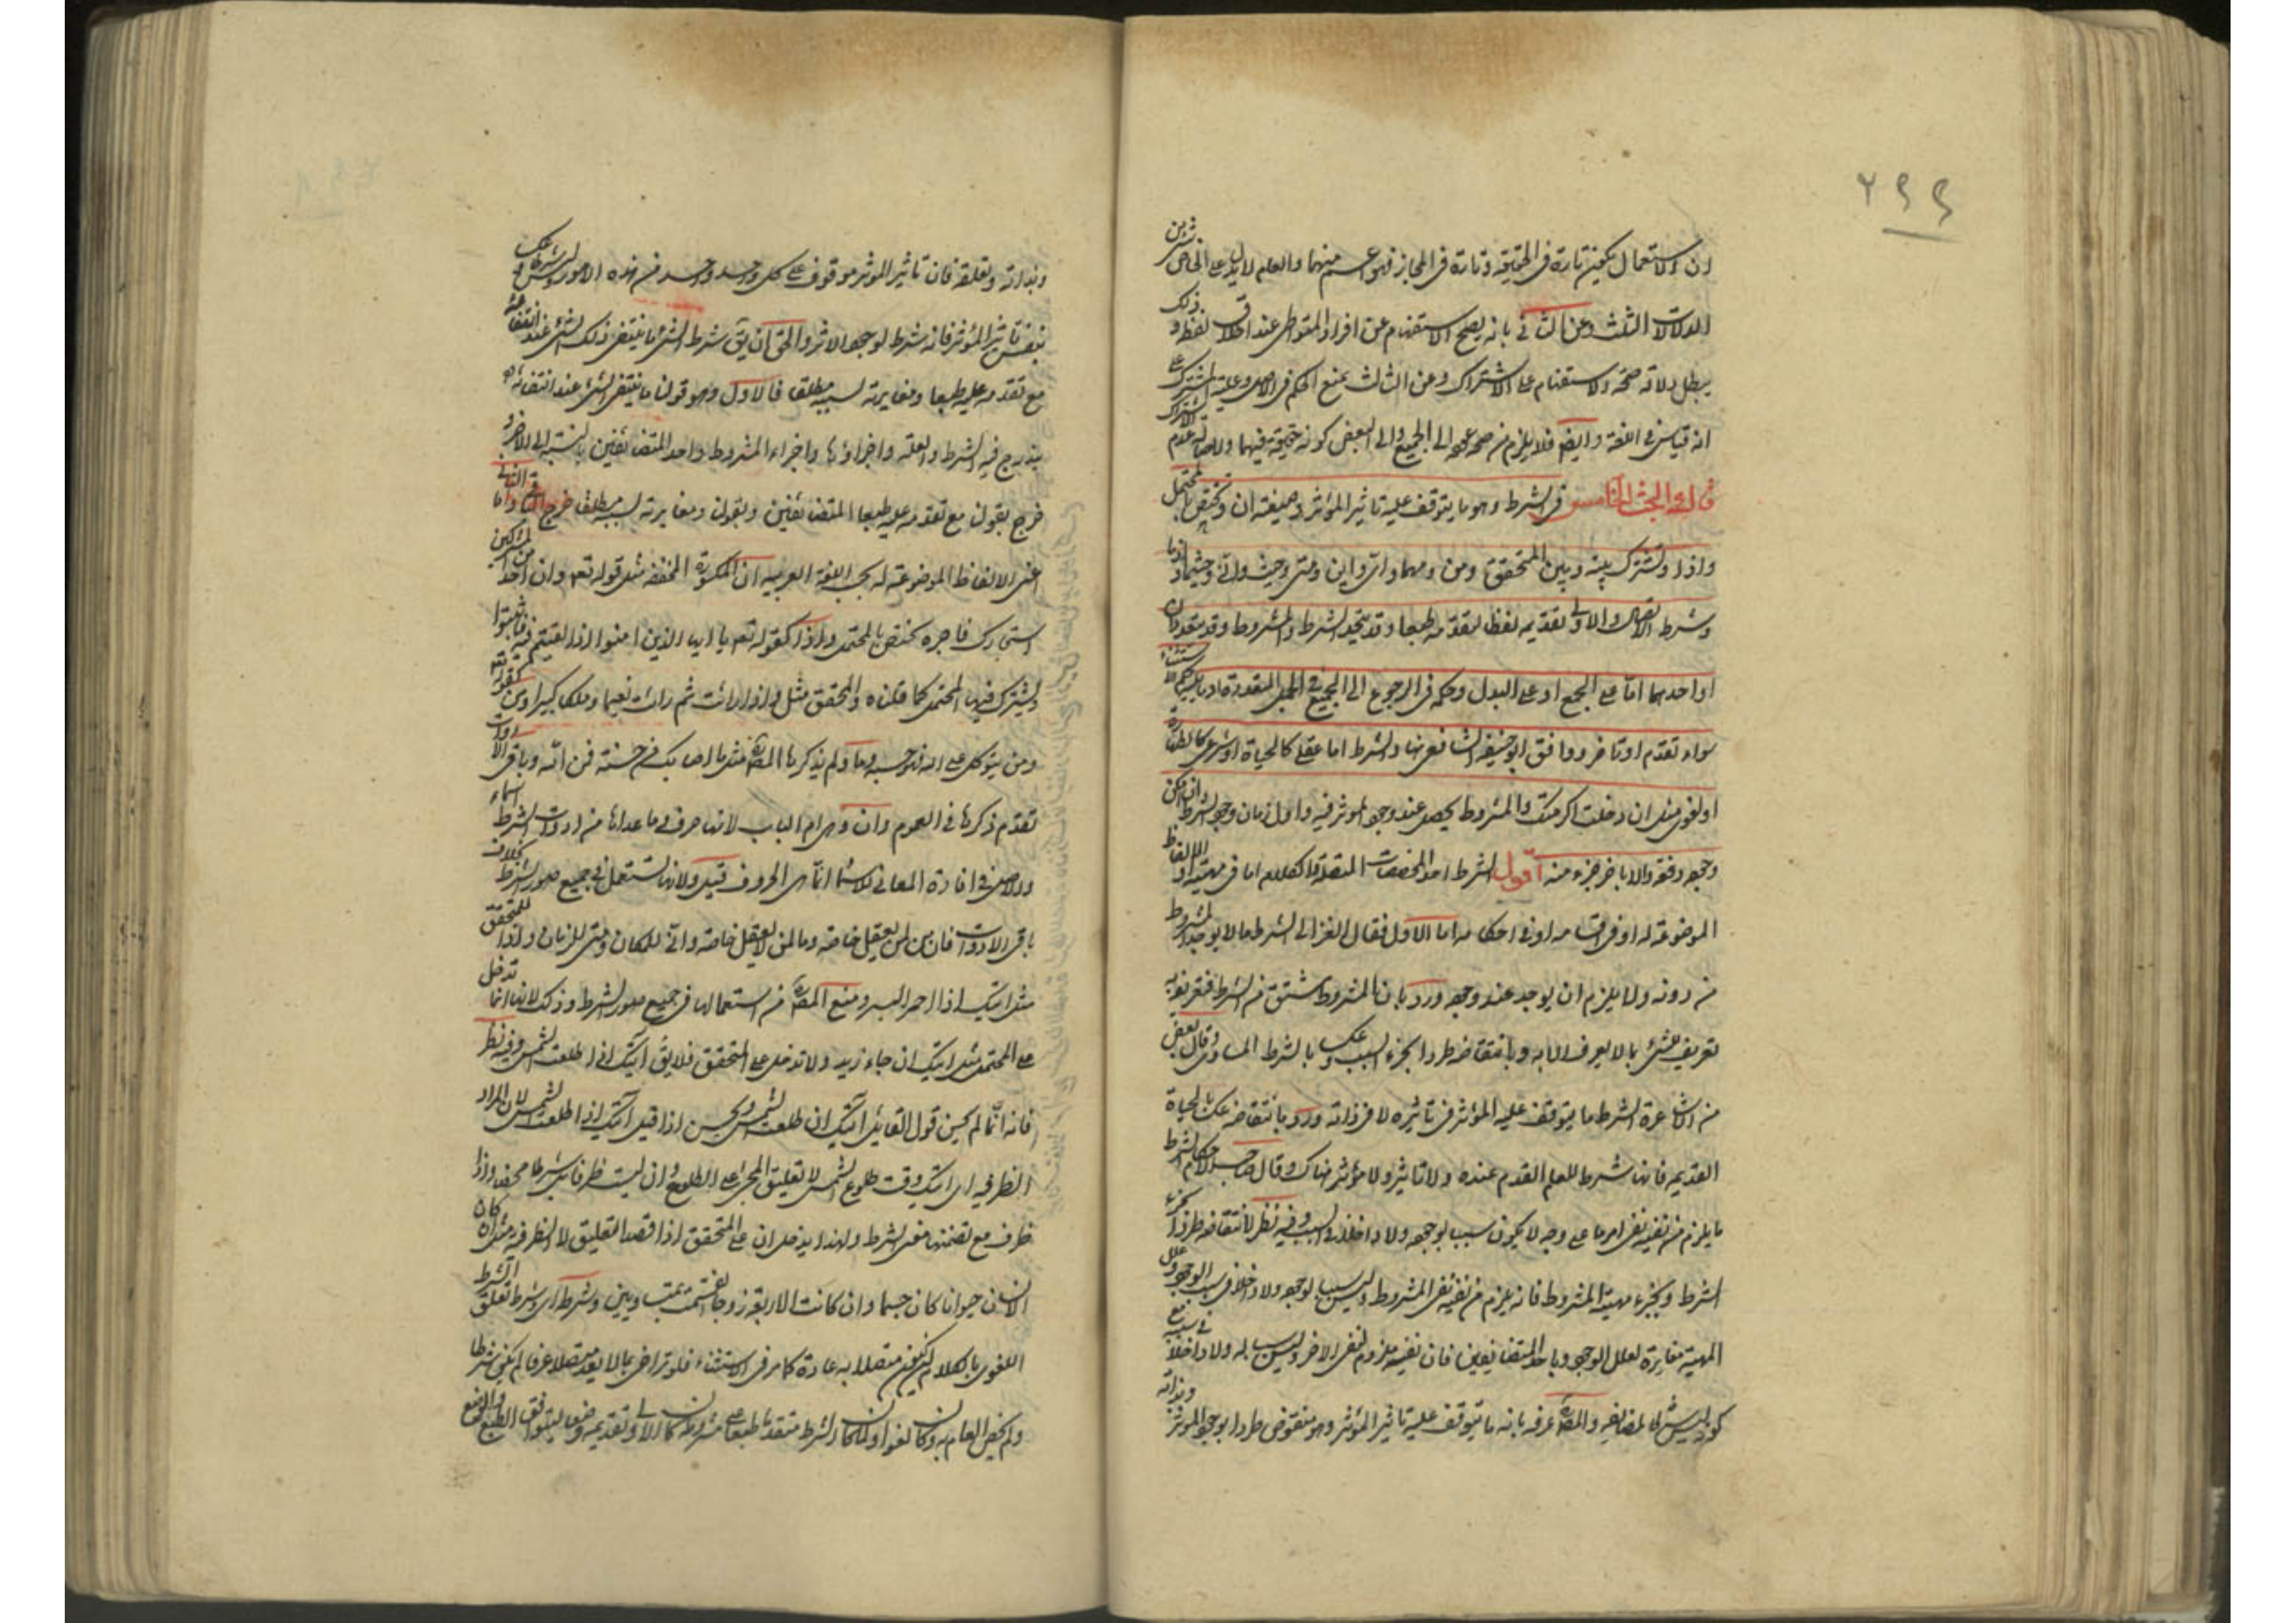 ٢٩٩
ان الاستعمال يكون تارة فى الحقيقة وتارة فى المجاز فهو اعم منهما والعام لا يدل على الخاص بشئ من
الدلالات الثلث وعن الثانى بانه يصح الاستفهام عن افراد المتواطى عند اطلاق لفظه وذلك
يبطل دلالة صحة الاستفهام على الاشتراك وعن الثالث بمنع الحكم فى الاصل وعلية المشترك على
انه قياس فى اللغة وايضا فلا يلزم من صحة عوده الى الجميع والى البعض كونه حقيقة فيهما ولاصالة عدم الاشتراك
قال البحث الخامس فى الشرط وهو ما يتوقف عليه تاثير المؤثر وصيغته ان وتختص بالمحتمل
واذا وتشترك بينه وبين المتحقق ومن ومهما واى واين ومتى وحيث وانى وحيثما واذما
وشرط الاتصال والاولى تقديمه لفظا لتقدمه طبعا وقد يتحد الشرط والمشروط وقد يتعددان
او احدهما اما على الجمع او على البدل وحكمه فى الرجوع الى الجميع فى الجمل المتعددة كالاستثناء
سواء تقدم او تاخر ووافق ابو حنيفة الشافعى هنا والشرط اما عقلى كالحياة او شرعى كالطهارة
او لغوى مثل ان دخلت اكرمتك والمشروط يحصل عند وجود المؤثر فيه واول زمان وجود الشرط ان امكن
وجوده دفعة والا باخر جزء منه اقول الشرط احد المخصصات المتصلة والكلام اما فى مهيته او الالفاظ
الموضوعة له او فى اقسامه او فى احكامه اما الاول فقال الغزالى الشرط ما لا يوجد المشروط
من دونه ولا يلزم ان يوجد عند وجوده ورد بان المشروط مشتق من الشرط فتعريفه به
تعريف للشئ بما لا يعرف الا به وبانتقاضه طردا بجزء السبب وعكسا بالشرط المساوى وقال بعض
من الاشاعرة الشرط ما يتوقف عليه المؤثر فى تاثيره لا فى ذاته ورد بانتقاضه عكسا بالحياة
القديمة فانها شرط للعلم القديم عنده ولا تاثير ولا مؤثر هناك وقال صاحب الاحكام الشرط
ما يلزم من نفيه نفى امر ما على وجه لا يكون سببا لوجوده ولا داخلا فى السبب وفيه نظر لانتقاضه طردا بجزء
الشرط وبجزء مهية المشروط فانه يلزم من نفيه نفى المشروط وليس سببا لوجوده ولا داخلا فى سبب الوجود وعلل
المهية مغايرة لعلل الوجود وباحد المتضايفين فان نفيه ملزوم لنفى الاخر وليس سببا له ولا داخلا فى سببه
والمص عرفه بانه ما يتوقف عليه تاثير المؤثر وهو منقوض طردا بوجود المؤثر وبذاته
وبذاته وتعلقه فان تاثير المؤثر موقوف على كل واحد واحد من هذه الامور وليس شرطا وعكسا
بنفس تاثير المؤثر فانه شرط لوجود الاثر والحق ان يق شرط الشئ ما ينتفى ذلك الشئ عند انتفائه
مع تقدمه عليه طبعا ومغايرته لسببه مطلقا فالاول وهو قولنا ما ينتفى الشئ عند انتفائه
يندرج فيه الشرط والعلة واجزاؤها واجزاء المشروط واحد المتضائفين بالنسبة الى الاخر و
خرج بقولنا مع تقدمه عليه طبعا المتضائفين وبقولنا ومغايرته لسببه مطلقا خرج الباقى واما الثانى
اعنى الالفاظ الموضوعة له بحسب اللغة العربية ان المكسورة المخففة مثل قوله تعه وان احد من المشركين
استجارك فاجره تختص بالمحتمل واذا كقوله تعه يا ايها الذين امنوا اذا لقيتم فئة فاثبتوا
ويشترك فيها المحتمل كما قلناه والمحقق مثل واذا رايت ثم رايت نعيما وملكا كبيرا ومن كقوله تعه
ومن يتوكل على الله فهو حسبه وما ولم يذكرها المص مثل ما اصابك من حسنة فمن الله وباقى الادوات
تقدم ذكرها فى العموم وان هى ام الباب لانها حرف وما عداها من ادوات الشرط اسماء
والاصل فى افادة المعانى للاسماء انما هى الحروف قيل ولانها تستعمل فى جميع صور الشرط بخلاف
باقى الادوات فان من لمن يعقل خاصة وما لمن لا يعقل خاصة واين للمكان ومتى للزمان واذا للمتحقق
مثل اتيك اذا احمر البسر ومنع المص من استعمالها فى جميع صور الشرط وذلك لانها انما تدخل
على المحتمل مثل اتيك ان جاء زيد ولا تدخل على المتحقق فلا يق اتيك ان طلعت الشمس وفيه نظر
فانه انما لم يحسن قول القائل اتيك ان طلعت الشمس ويحسن اذا قيل اتيك اذا طلعت الشمس لان المراد
الظرفية اى اتيك وقت طلوع الشمس لا تعليق المجئ على الطلوع وان ليست ظرفا بل شرطا محضا واذا
ظرف مع تضمنها معنى الشرط ولهذا يدخل ان على المتحقق اذا قصد التعليق لا الظرفية مثل ان كان
الانسان حيوانا كان جسما وان كانت الاربعة زوجا انقسمت بمتساويين وشرط اى وشرط تعلق الشرط
اللغوى بالكلام ان يكون متصلا به عادة كما مر فى الاستثناء فلو تراخى بما لا يعد متصلا عرفا لم يكن شرطا
ولم يخص العام به وكان لغوا ولما كان الشرط متقدما طبعا على مشروطه كان الاولى تقديمه وضعا ليتوافق الطبع والوضع